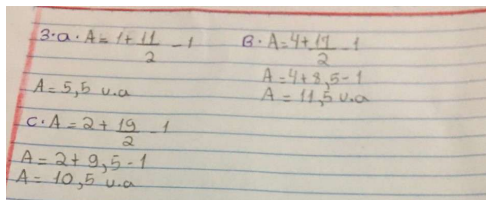 3.a. A = 1 + 11/2 - 1
A = 5,5 u.a
B. A = 4 + 17/2 - 1
A = 4 + 8,5 - 1
A = 11,5 u.a
C. A = 2 + 19/2 - 1
A = 2 + 9,5 - 1
A = 10,5 u.a